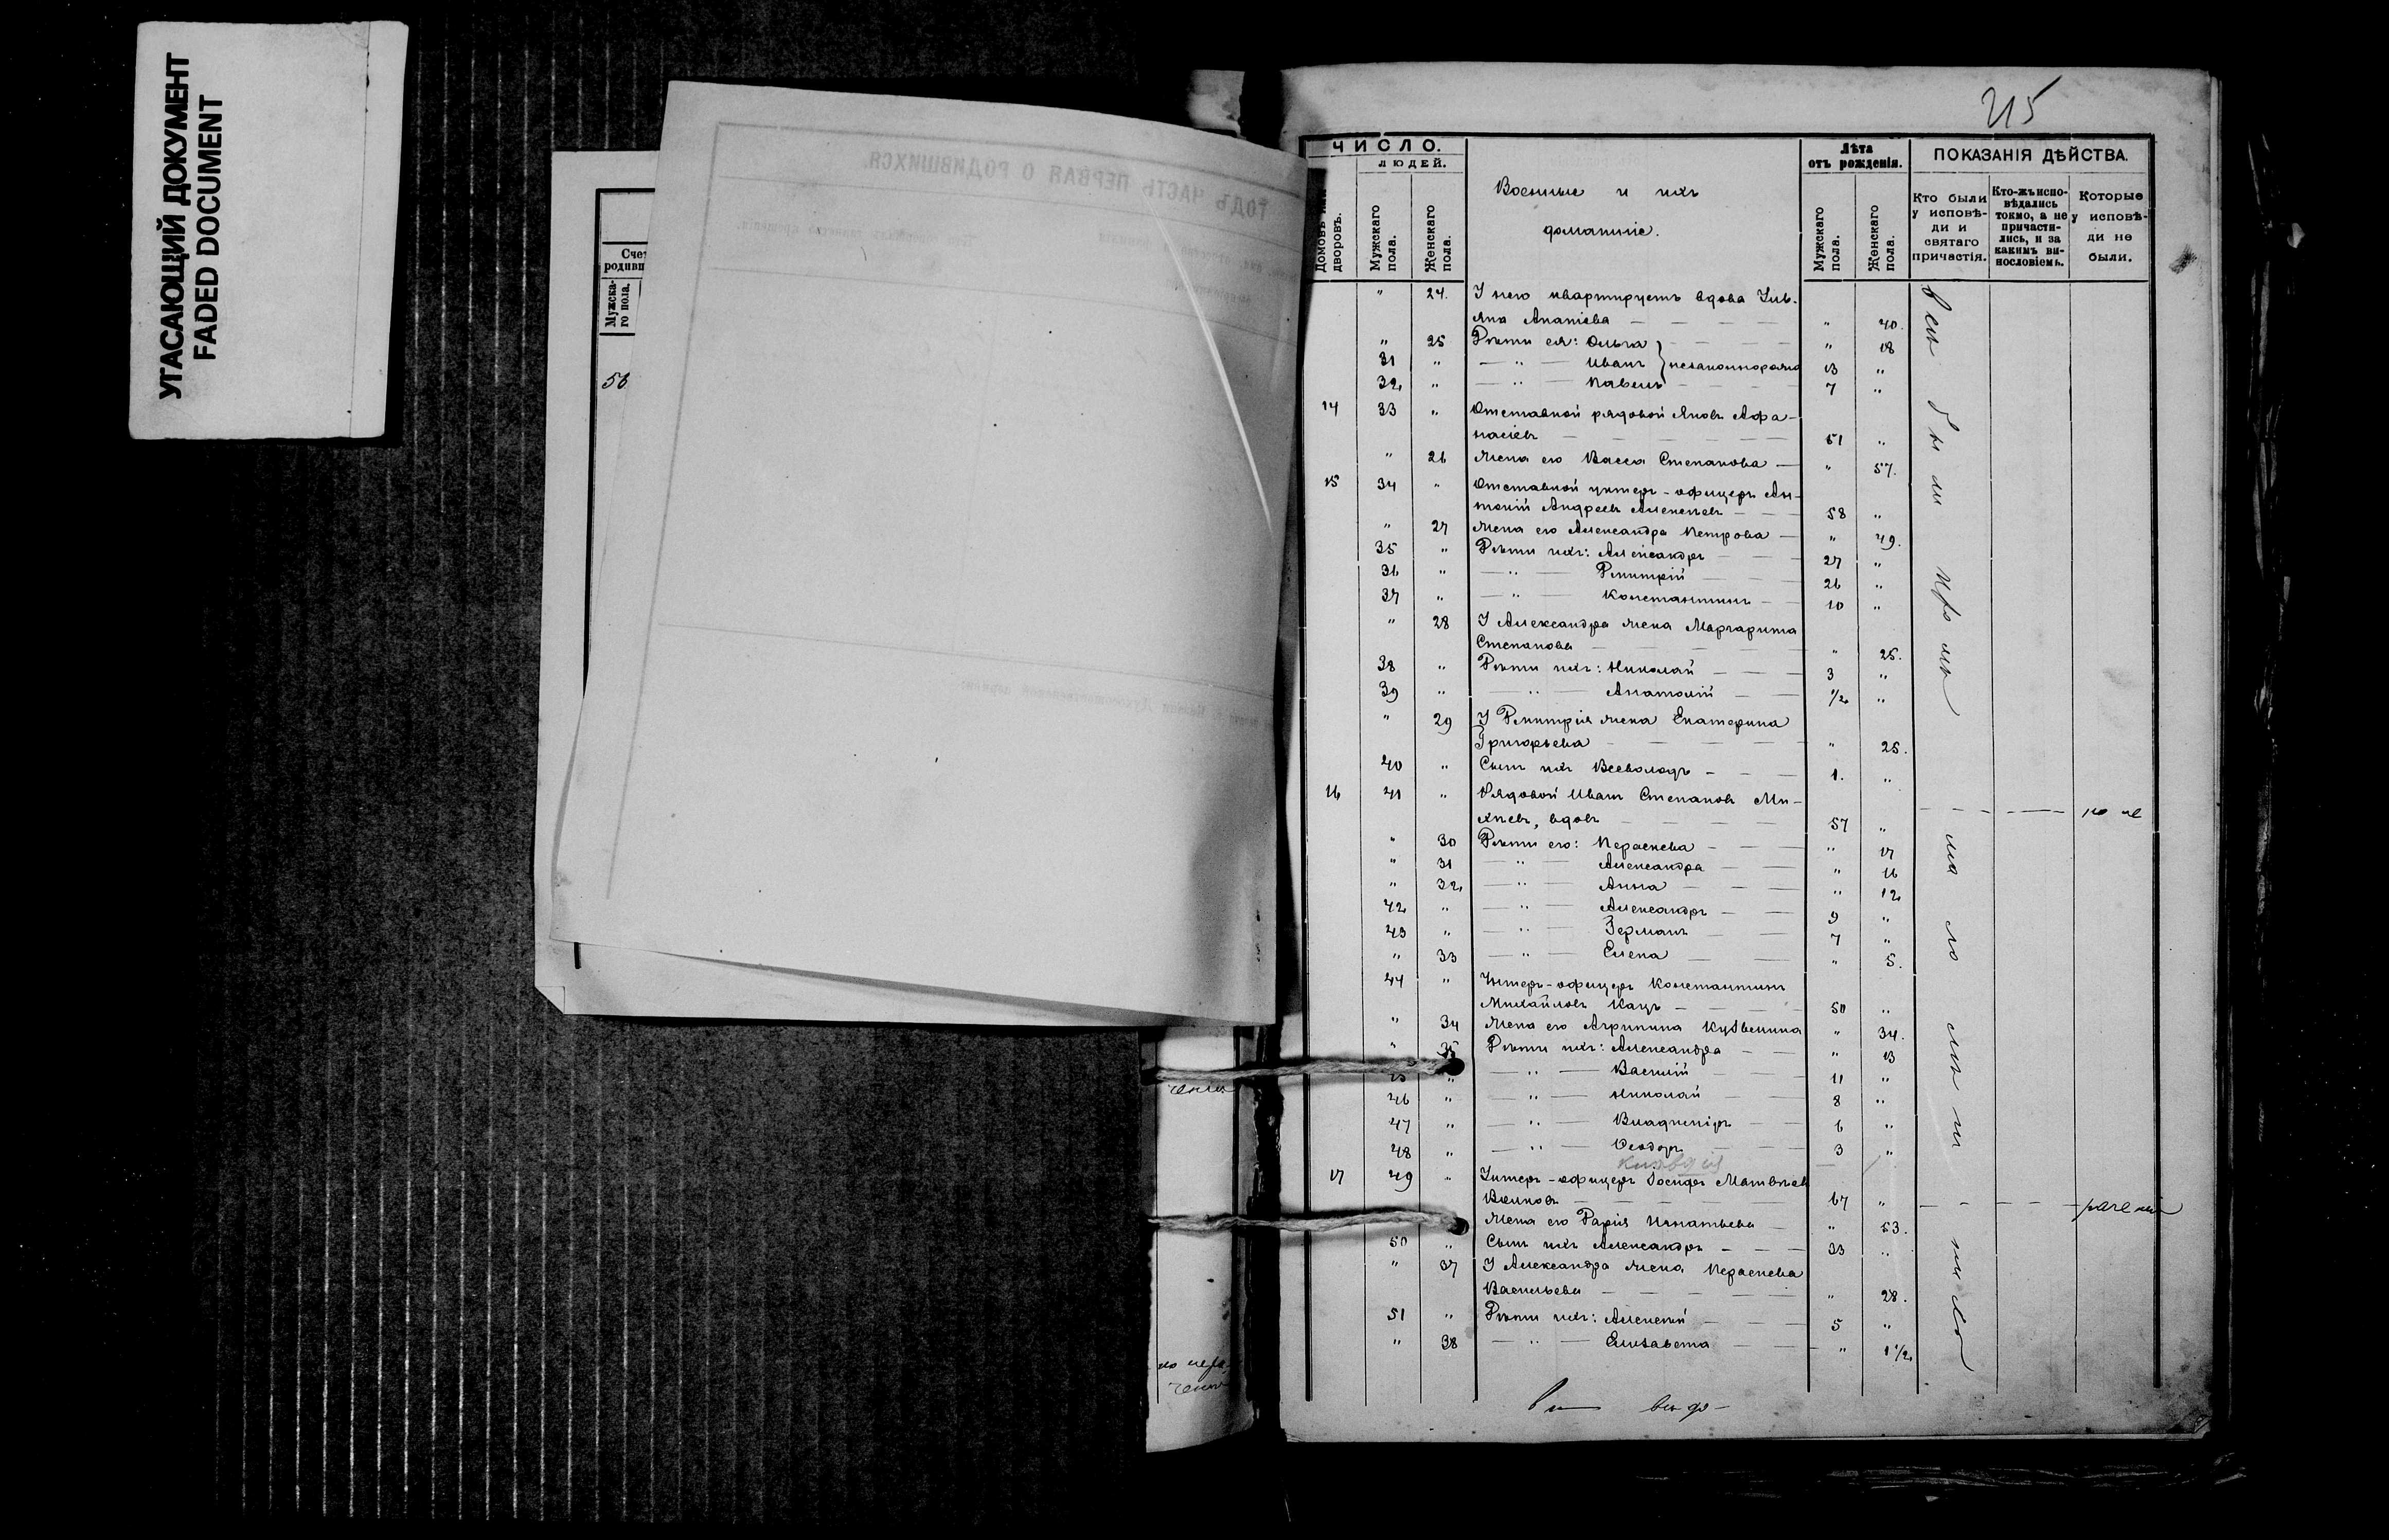 УГАСАЮЩИЙ ДОКУМЕНТ
FADED DOCUMENT
ГОДЪ ЧАСТЬ ПЕРВАЯ О РОДИВШИХСЯ.
Счет
родивш
Мужска-
го пола.
56
215
ЧИСЛО.
ЛЮДЕЙ.
Домовъ или дворовъ.
Мужскаго пола.
Женскаго пола.
Военные и ихъ
домашніе.
Лѣта
отъ рожденія.
Мужскаго пола.
Женскаго пола.
ПОКАЗАНІЯ ДѢЙСТВА.
Кто были у исповѣ-ди и святаго причастія.
Кто-жъ испо-вѣдались токмо, а не причасти-лись, и за какимъ ви-нословіемъ.
Которые у исповѣ-ди не были.
" 24. У него квартируетъ вдова Уль-
яна Ананіева — " 40.
" 25 Дѣти ея: Ольга — " 18
31 " — " — Иванъ } незаконнорожд 13 "
32 " — " — Павелъ — 7 "
14 33 " Отставной рядовой Яковъ Афа-
насіевъ — 51 "
" 26 Жена его Васса Степанова — " 57.
15 34 " Отставной унтеръ-офицеръ Ан-
тоній Андреевъ Алексѣевъ — 58 "
" 27 Жена его Александра Петрова — " 49.
35 " Дѣти ихъ: Александръ — 27 "
36 " — " — Димитрій — 26 "
37 " — " — Константинъ — 10 "
" 28 У Александра жена Маргарита
Степанова — " 25.
38 " Дѣти ихъ: Николай — 3 "
39 " — " — Анатолій — 1/2 "
" 29 У Димитрія жена Екатерина
Григорьева — " 25.
40 " Сынъ ихъ Всеволодъ — 1. "
16 41 " Рядовой Иванъ Степановъ Ми-
хѣевъ, вдовъ — 57 "
" 30 Дѣти его: Параскева — " 17
" 31 — " — Александра — " 16
" 32 — " — Анна — " 12
42 " — " — Александръ — 9 "
43 " — " — Германъ — 7 "
" 33 — " — Елена — " 5.
44 " Унтеръ-офицеръ Константинъ
Михайловъ Кацъ — 50 "
" 34 Жена его Агрипина Кузьмина " 34.
" 35 Дѣти ихъ: Александра — " 13
45 " — " — Василій — 11 "
46 " — " — Николай — 8 "
47 " — " — Владиміръ — 6 "
48 " — " — Ѳеодоръ — 3 "
Клавдія
17 49 " Унтеръ-офицеръ Іосифъ Матвѣевъ
Волковъ — 67 "
Жена его Дарія Игнатьева — " 53.
50 " Сынъ ихъ Александръ — 33 "
" 37 У Александра жена Параскева
Васильева — " 28.
51 " Дѣти ихъ: Алексѣй — 5 "
" 38 — " — Елисавета — " 1 1/2
по не
раченію
по нера-
ченію